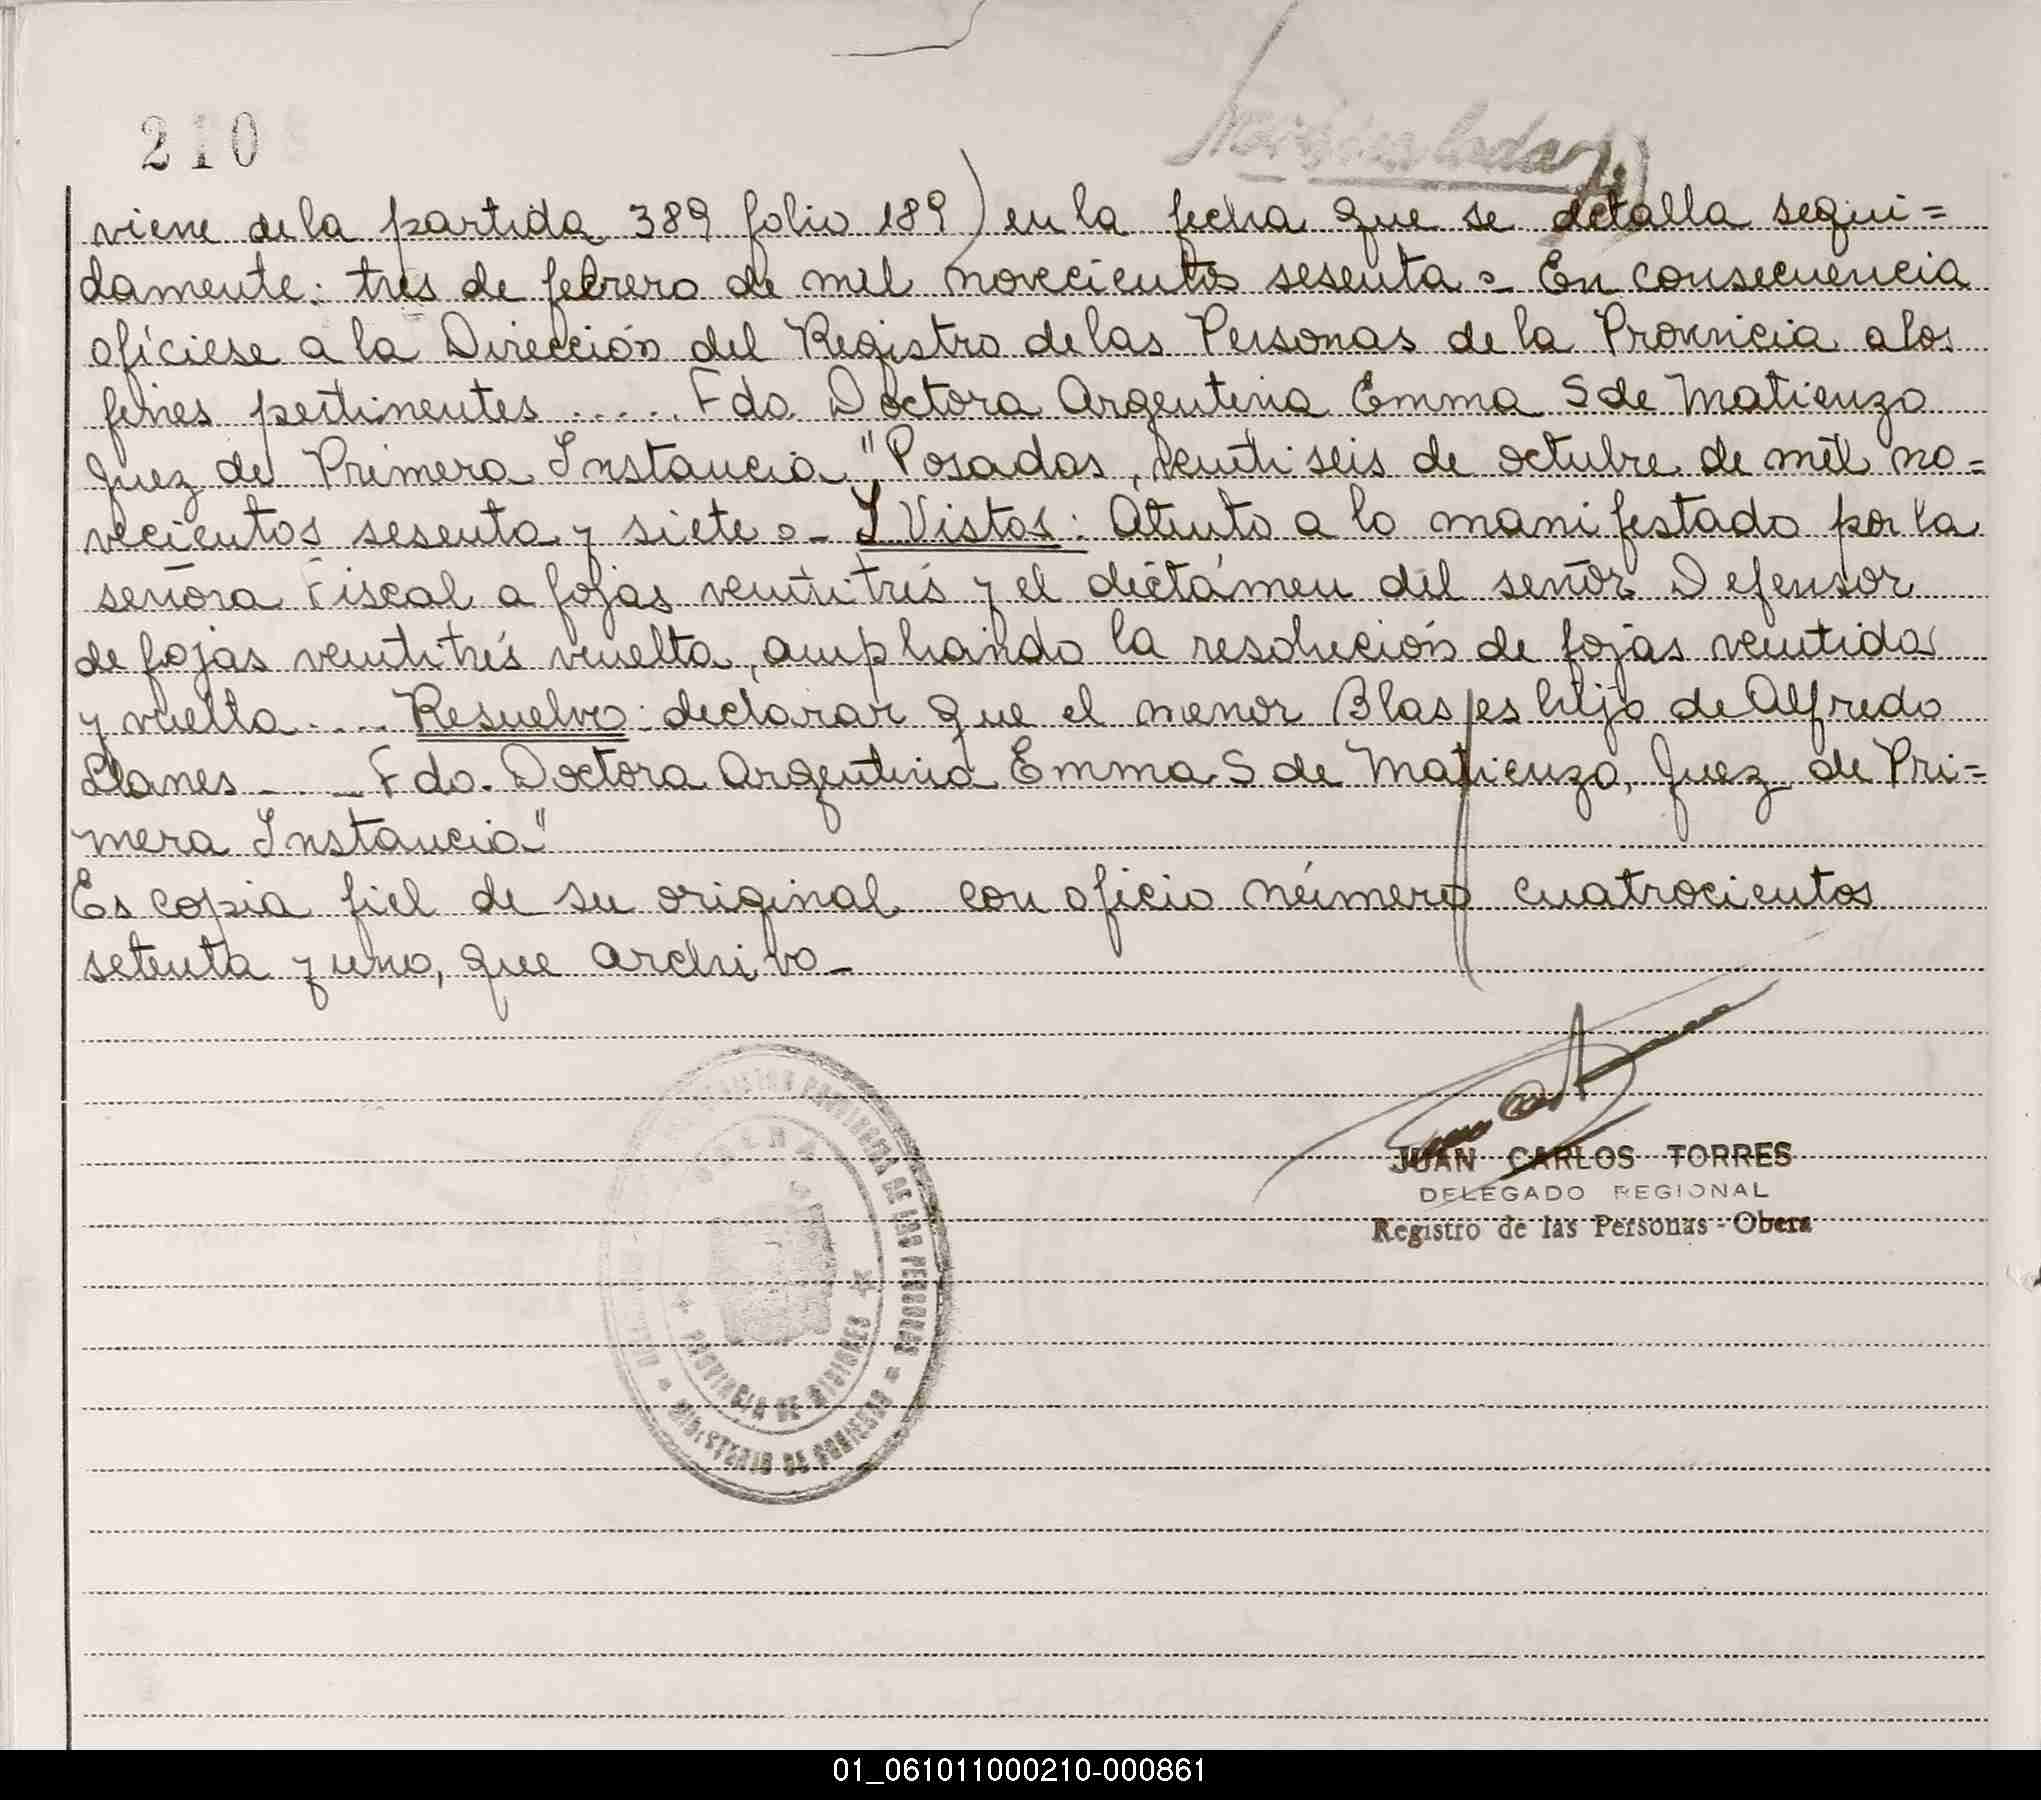 210
viene de la partida 389 folio 189) en la fecha que se detalla segui=
damente: tres de febrero de mil novecientos sesenta.- En consecuencia
ofíciese a la Dirección del Registro de las Personas de la Provincia a los
fines pertinentes ..... Fdo. Doctora Argentina Emma S de Matienzo
Juez de Primera Instancia "Posadas, ventiseis de octubre de mil no=
vecientos sesenta y siete.- Y Vistos: Atento a lo manifestado por la
señora Fiscal a fojas ventitrés y el dictámen del señor Defensor
de fojas ventitrés vuelta, ampliando la resolución de fojas ventidos
y vuelta .... Resuelvo: declarar que el menor Blas es hijo de Alfredo
Llanes - - - Fdo. Doctora Argentina Emma S de Matienzo, Juez de Pri=
mera Instancia"
Es copia fiel de su original con oficio número cuatrocientos
setenta y uno, que archivo-
JUAN CARLOS TORRES
DELEGADO REGIONAL
Registro de las Personas - Obera
PROVINCIAL DE LAS PERSONAS
MINISTERIO DE GOBIERNO
OBERA
PROVINCIA DE MISIONES
01_061011000210-000861